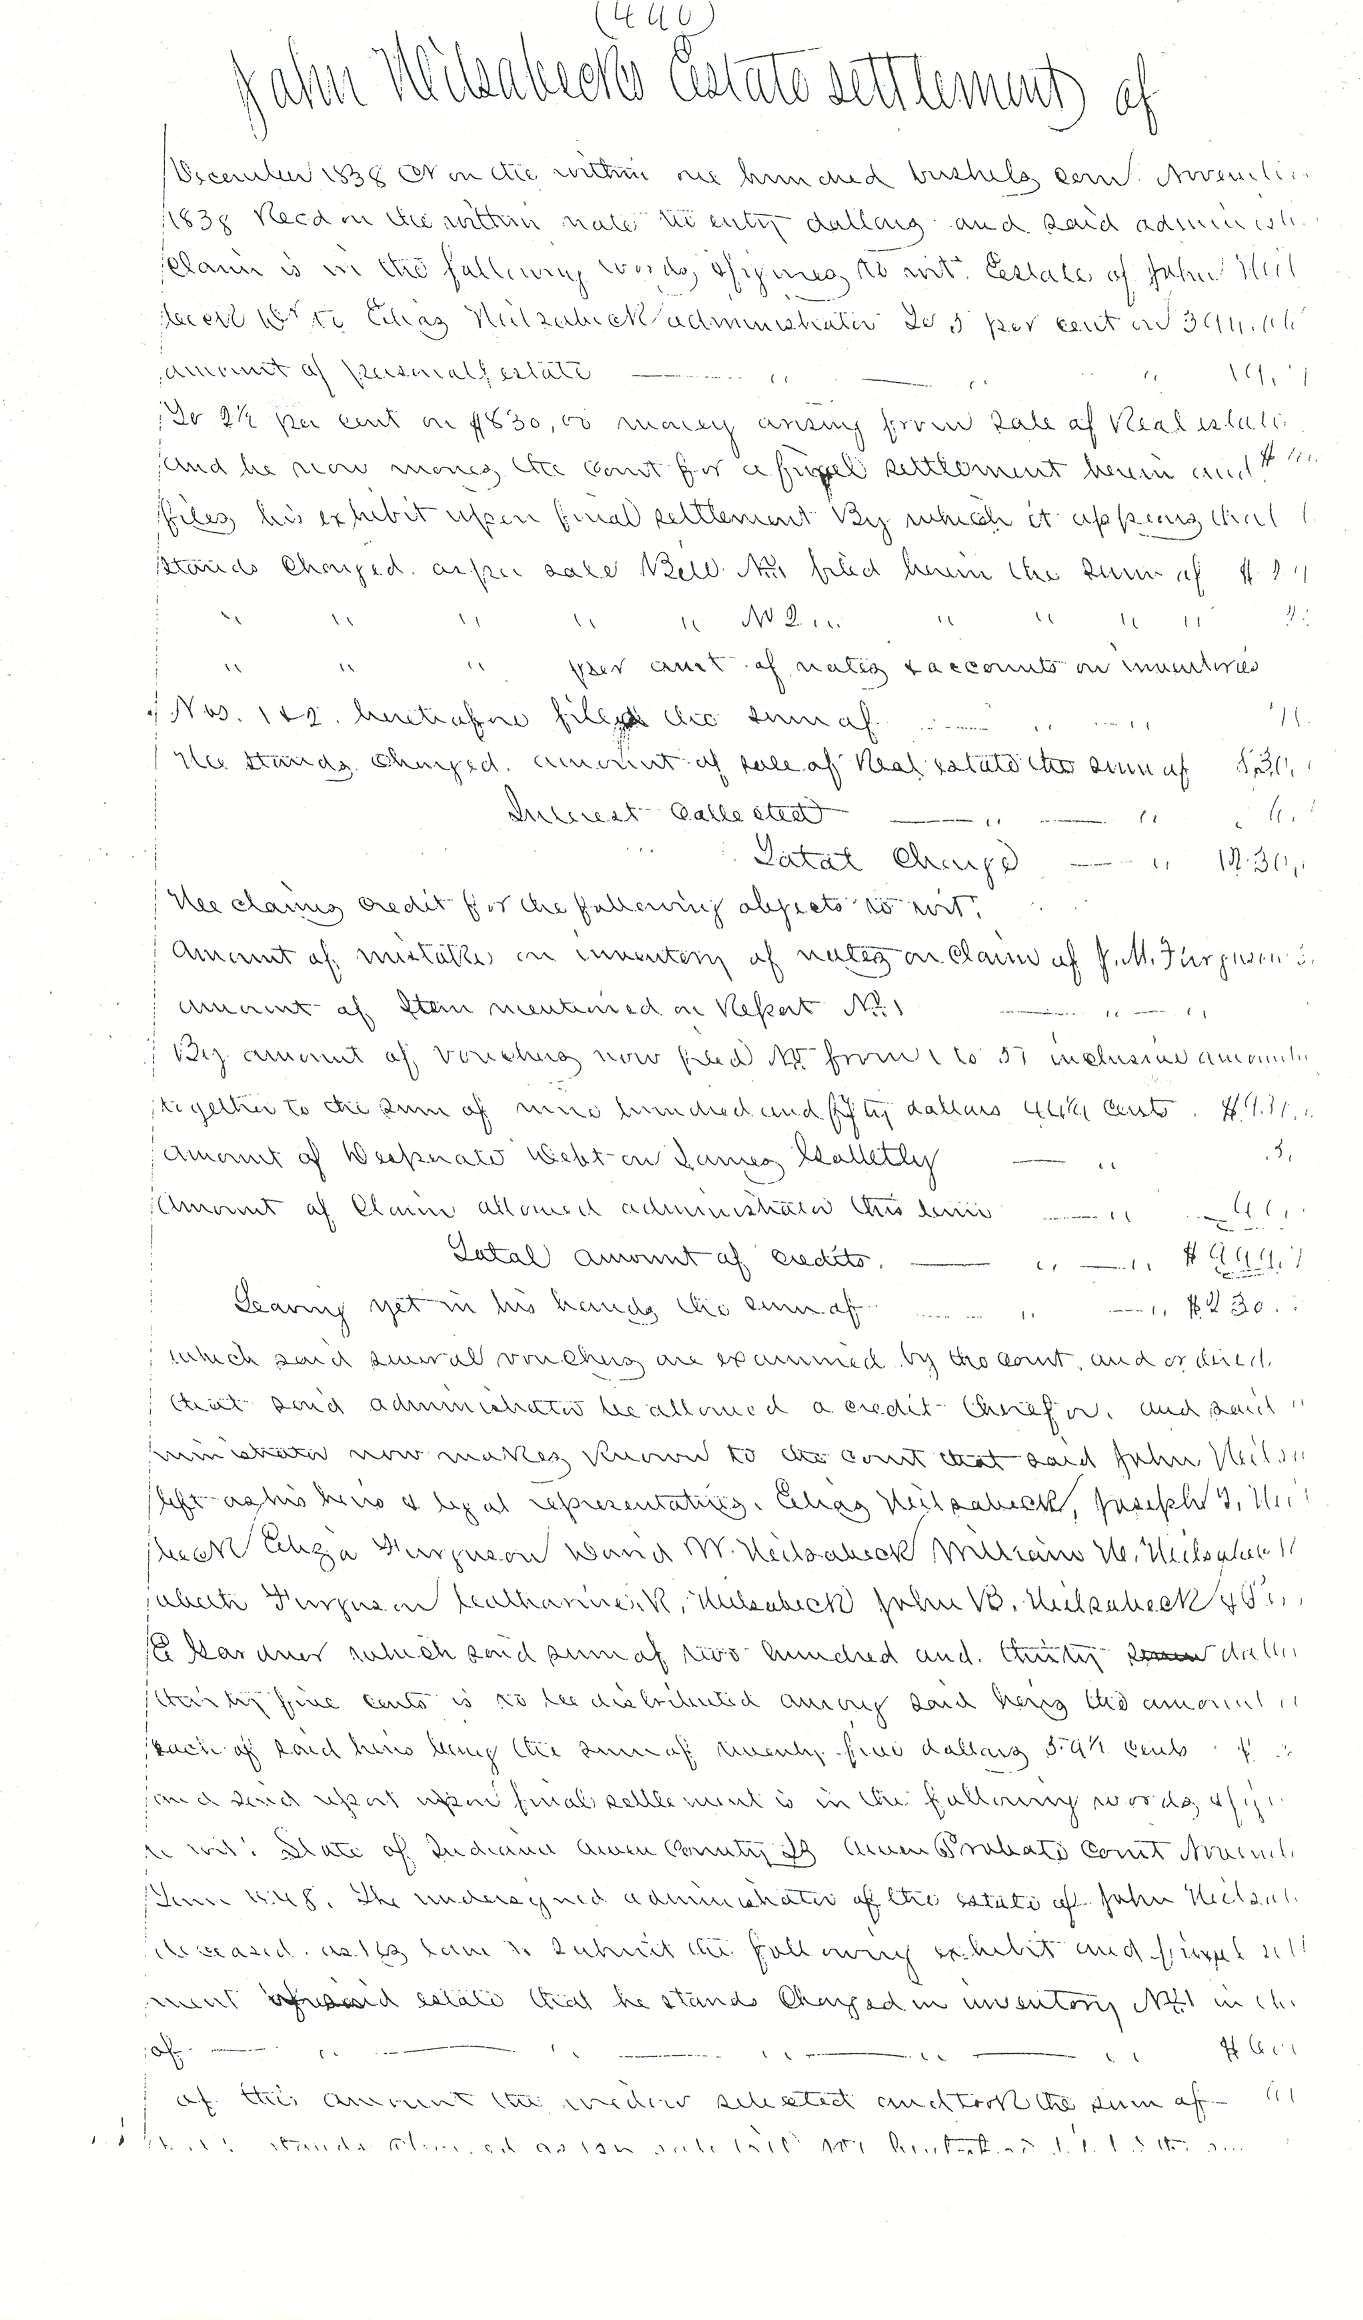 (446)
John Neilsabecks Estate settlement of
December 1838 Cr on the within one hundred bushels corn. November
1838 Recd on the within note twenty dollars and said administ
claim is in the following words & figures to wit. Estate of John Neil
to Elias Neilsabeck administrator To 5 per cent on
amount of personal estate " " " 19.
To 2½ per cent on $830,00 money arising from sale of Real estate
and he now moves the court for a final settlement herein and $
files his exhibit upon final settlement By which it appears that
stands Charged as per sale Bill No 1 filed herein the sum of $
" " " " " No 2 " " " " "
" " " per amt of notes & accounts on inventories
Nos. 1 & 2. heretofore filed the sum of " "
He stands Charged. amount of sale of Real estate the sum of 830,
Interest Collected " "
Total Charge " 1230,
He claims credit for the following objects to wit.
Amount of mistake on inventory of notes on claim of J. M. Furguson
amount of Item mentioned on Report No 1 " "
By amount of vouchers now filed No from 1 to 57 inclusive amount
together to the sum of nine hundred and fifty dollars 44¼ cents. $95
Amount of Desperate Debt on James Galletly " 3,
Amount of Claim allowed administrator this term "
Total amount of credits. " " $999.
Leaving yet in his hands the sum of " " $230.
which said several vouchers are examined by the court, and ordered
that said administrator be allowed a credit therefor. and said
ministrator now makes known to the court that said John Neilsa
left as his heirs & legal representatives. Elias Neilsabeck, Joseph T, Neil
beck Eliza Furguson David W. Neilsabeck William H. Neilsabeck
abeth Furguson Catharine K, Neilsabeck John B. Neilsabeck &
E Gardner which said sum of two hundred and. thirty dollar
thirty five cents is to be distributed among said heirs the amount
each of said heirs being the sum of twenty five dollars 59½ cents
and said report upon final settlement is in the following words &
to wit: State of Indiana Owen County SS Owen Probate Court November
Term 1848. The undersigned administrator of the estate of John Neilsa
deceased. asks leave to submit the following exhibit and final settl
ment of said estate that he stands Charged in inventory No 1 in the
of " " " " " $
of this amount the widow selected and took the sum of
stands Charged as per sale bill No 1